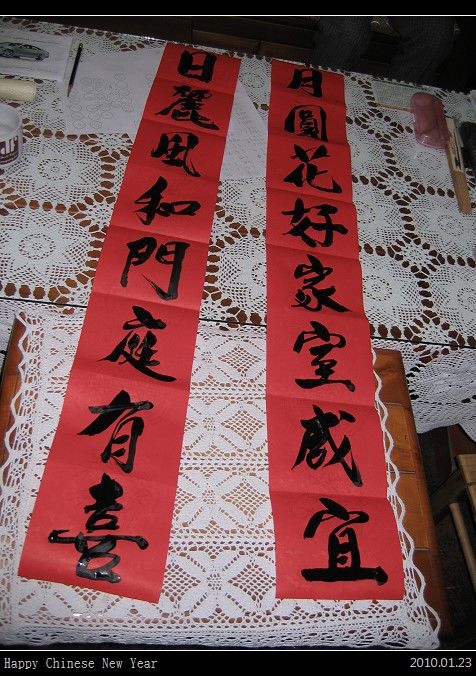 日麗風和門庭有喜
月圓花好家室咸宜
Happy Chinese New Year
2010.01.23